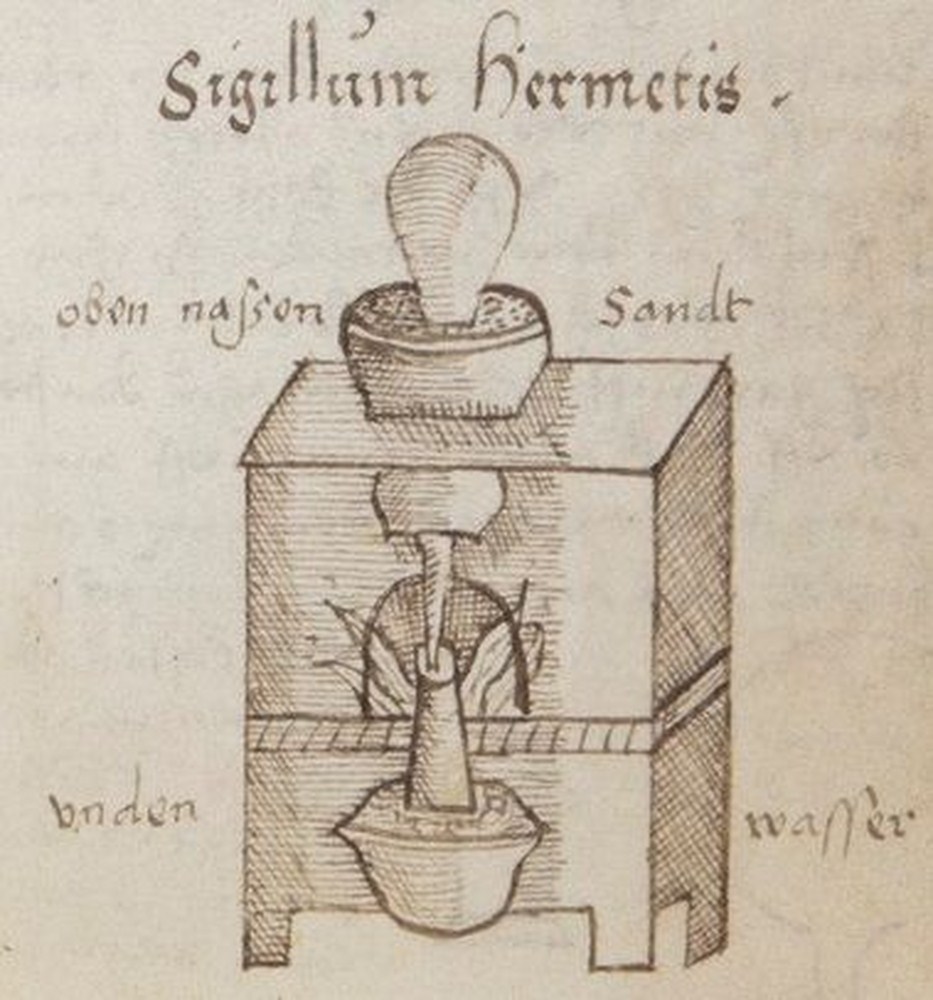 Sigillum Hermetis.
oben nassen Sandt
vnden wasser